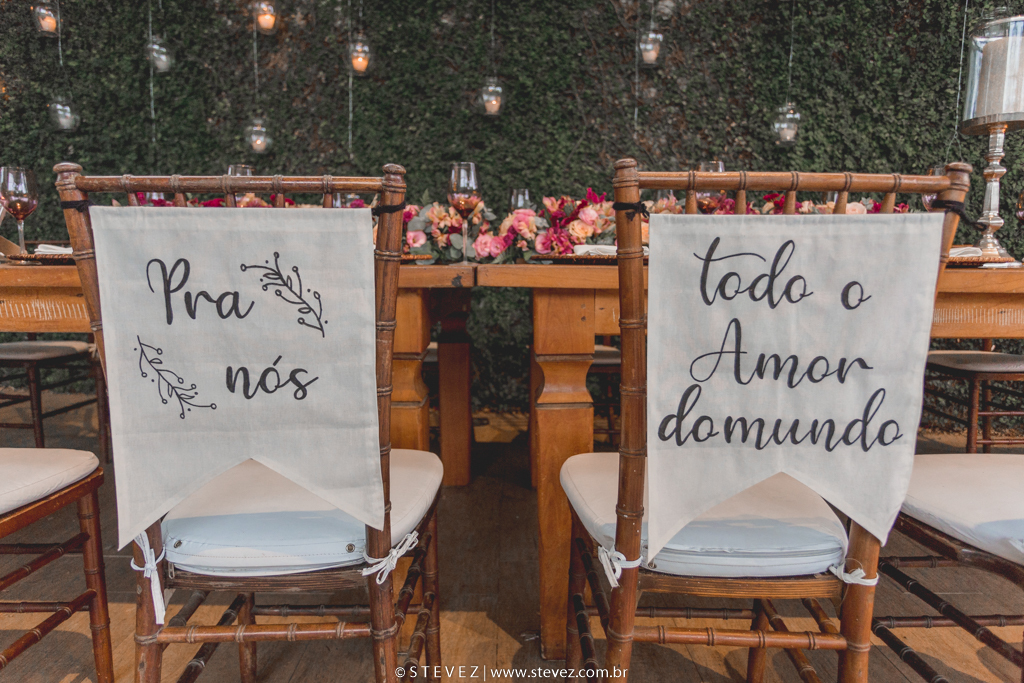 Pra
nós
todo o
Amor
domundo
© STEVEZ | www.stevez.com.br